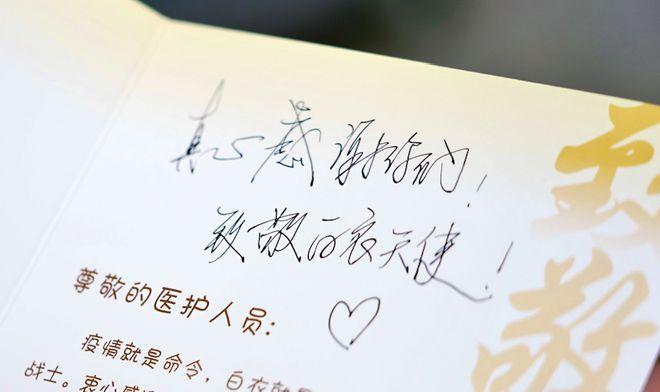 真心感谢你们!
致敬白衣天使!
尊敬的医护人员:
疫情就是命令,白衣就是
战士。衷心感
致
敬